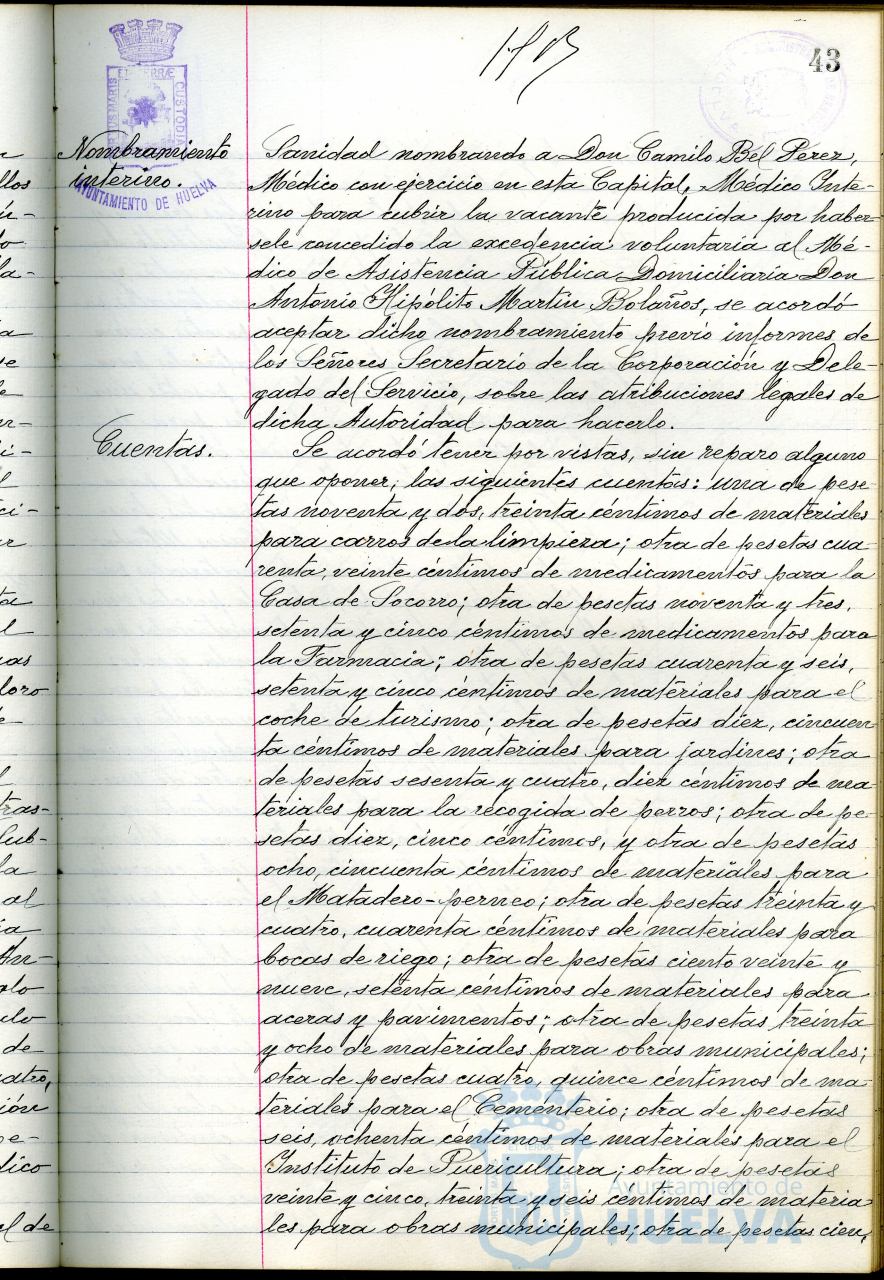 43
Nombramiento
interino.
AYUNTAMIENTO DE HUELVA
Sanidad nombrando a Don Camilo Bel Perez,
Médico con ejercicio en esta Capital, Médico Inte-
rino para cubrir la vacante producida por haber-
sele concedido la excedencia voluntaria al Mé-
dico de Asistencia Pública Domiciliaria Don
Antonio Hipólito Martin Bolaños, se acordó
aceptar dicho nombramiento previo informes de
los Señores Secretario de la Corporación y Dele-
gado del Servicio, sobre las atribuciones legales de
dicha Autoridad para hacerlo.
Cuentas.
Se acordó tener por vistas, sin reparo alguno
que oponer, las siguientes cuentas: una de pese-
tas noventa y dos, treinta céntimos de materiales
para carros de la limpieza; otra de pesetas cua-
renta, veinte céntimos de medicamentos para la
Casa de Socorro; otra de pesetas noventa y tres,
setenta y cinco céntimos de medicamentos para
la Farmacia; otra de pesetas cuarenta y seis,
setenta y cinco céntimos de materiales para el
coche de turismo; otra de pesetas diez, cincuen-
ta céntimos de materiales para jardines; otra
de pesetas sesenta y cuatro, diez céntimos de ma-
teriales para la recogida de perros; otra de pe-
setas diez, cinco céntimos, y otra de pesetas
ocho, cincuenta céntimos de materiales para
el Matadero-perneo; otra de pesetas treinta y
cuatro, cuarenta céntimos de materiales para
bocas de riego; otra de pesetas ciento veinte y
nueve, setenta céntimos de materiales para
aceras y pavimentos; otra de pesetas treinta
y ocho de materiales para obras municipales;
otra de pesetas cuatro, quince céntimos de ma-
teriales para el Cementerio; otra de pesetas
seis, ochenta céntimos de materiales para el
Instituto de Puericultura; otra de pesetas
veinte y cinco, treinta y seis céntimos de materia-
les para obras municipales; otra de pesetas cien,
Ayuntamiento de
HUELVA